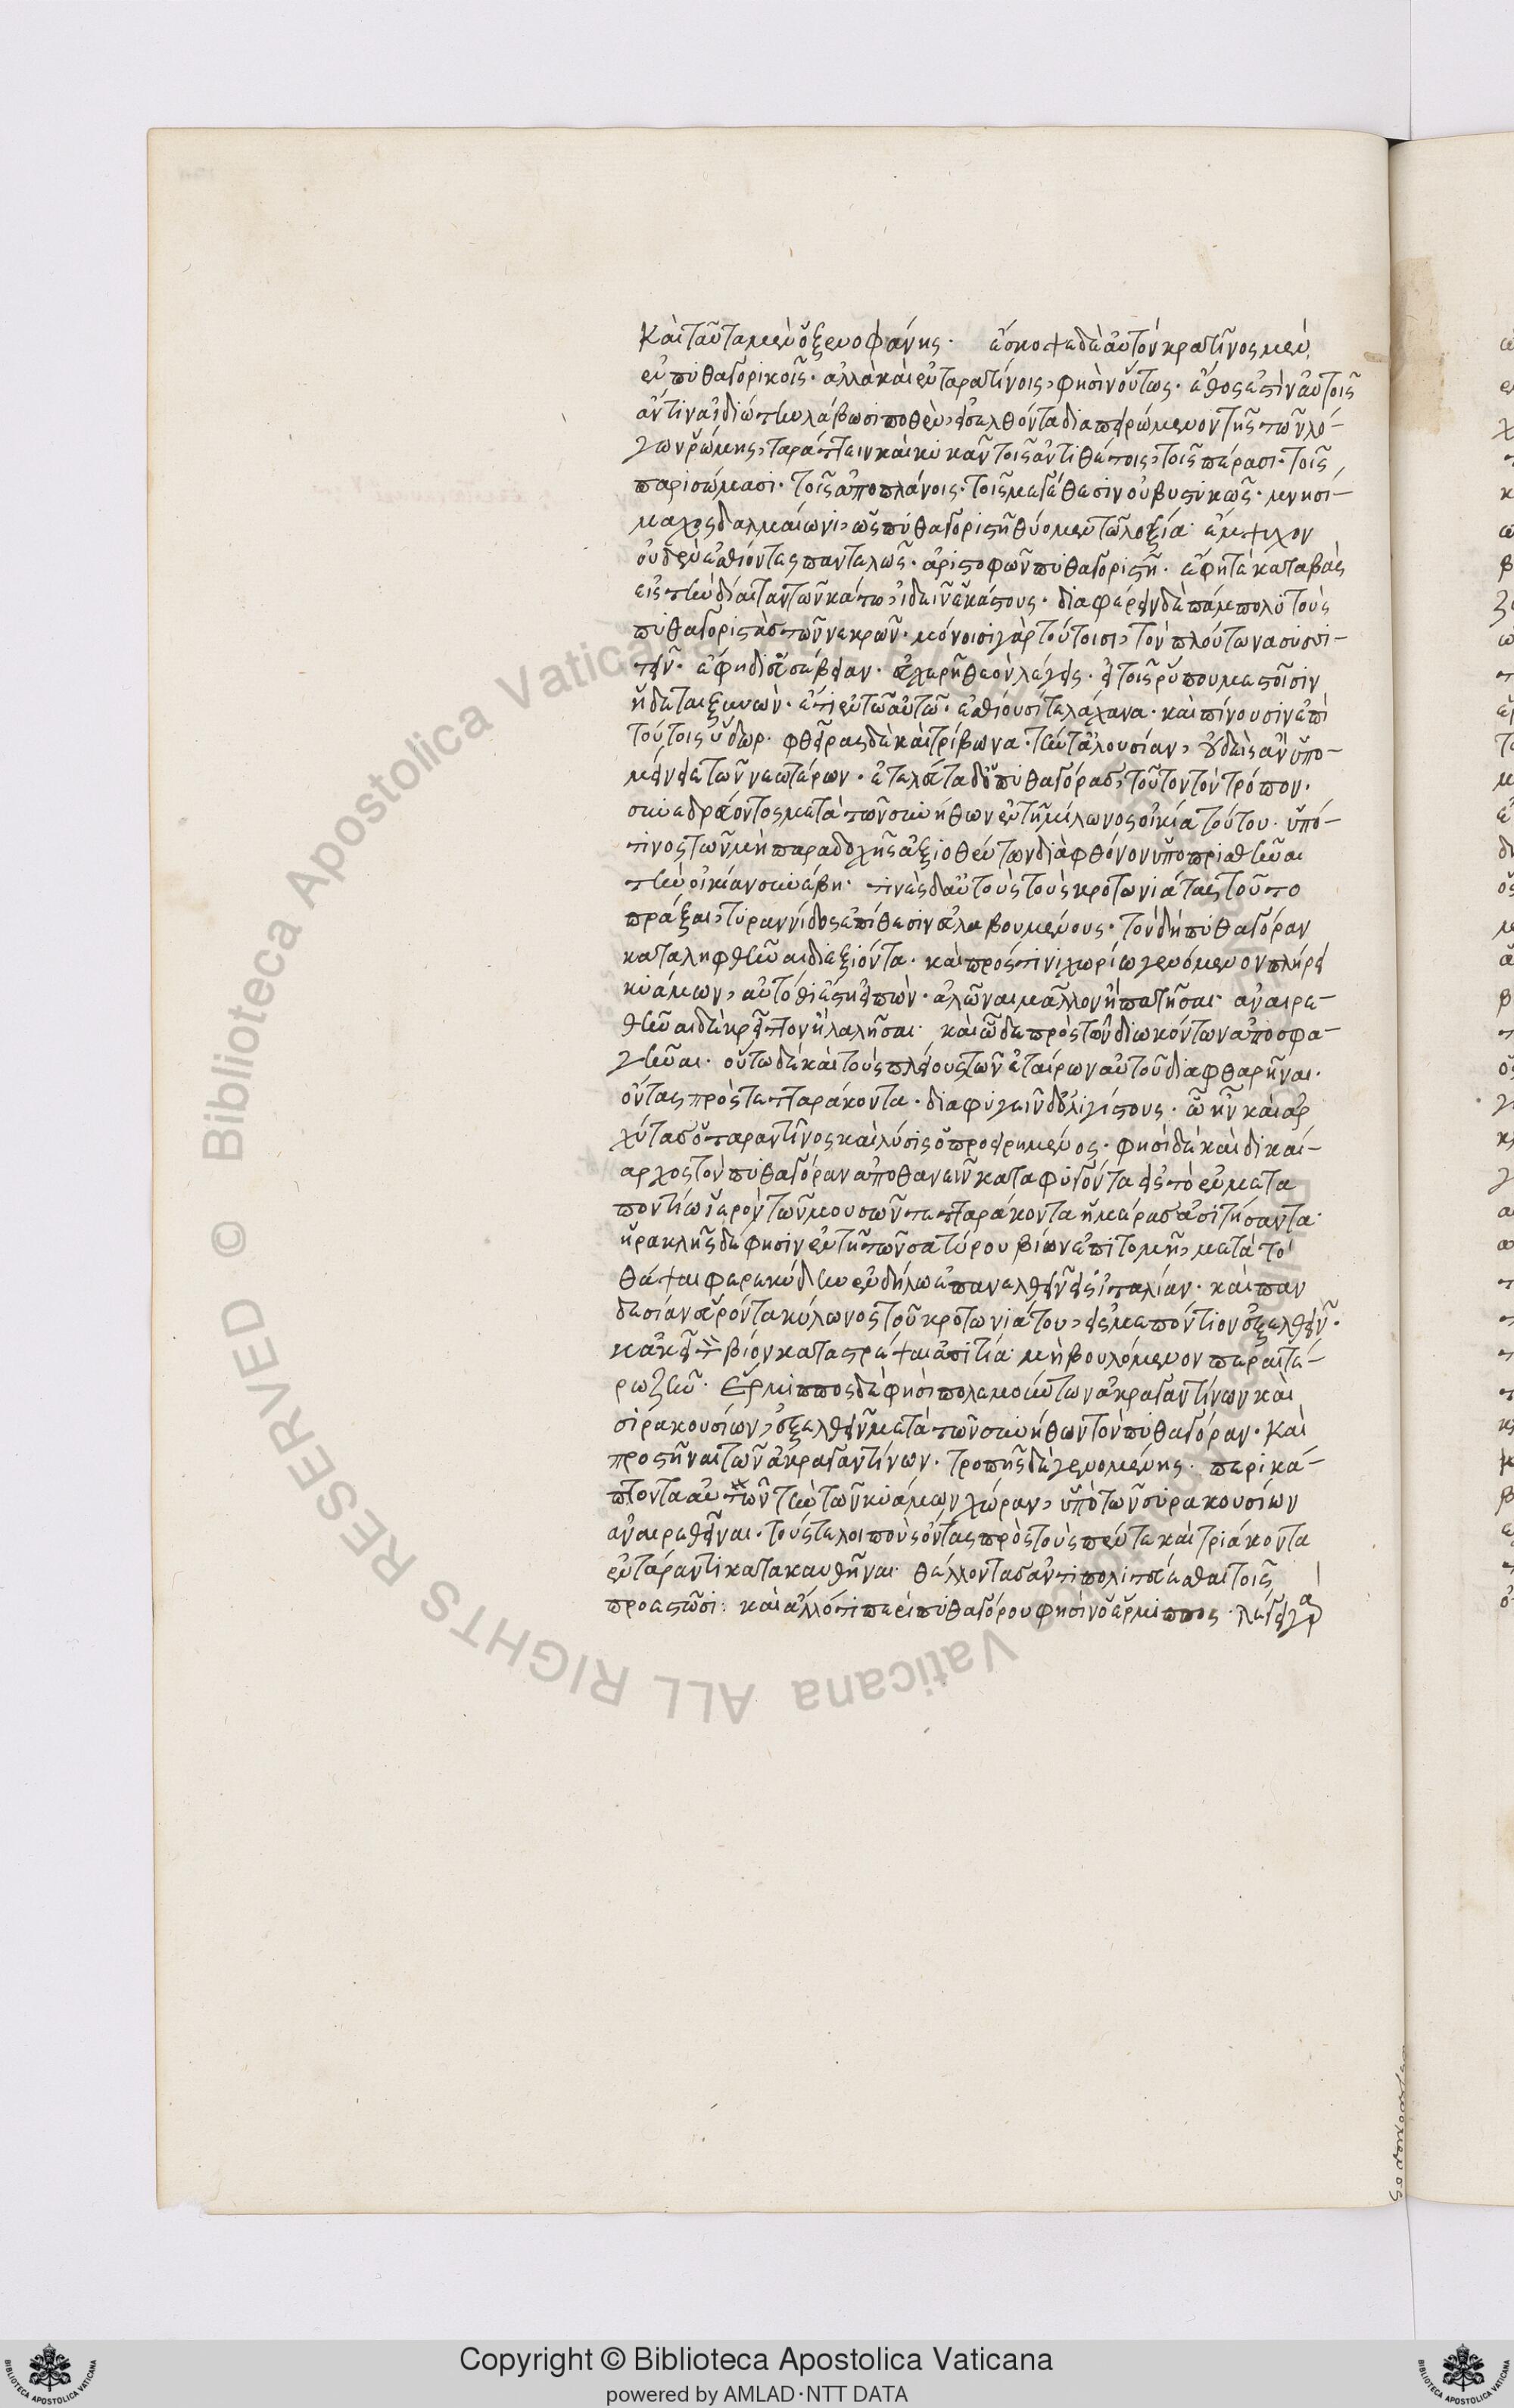 Καὶ ταῦτα μὲν ὁ ξενοφάνης. ἔσκοψε δὲ αὐτὸν κρατῖνος μὲν
ἐν πυθαγοριζούσῃ
ἄν τιν' ἰδιώτην λάβωσί ποθεν εἰσελθόντα διαπειρώμενον τῆς τῶν λό-
γων ῥώμης, ταράττειν καὶ κυκᾶν τοῖς ἀντιθέτοις, τοῖς πέρασι. τοῖς
παρισώμασι. τοῖς ἀποπλάνοις. τοῖς μεγέθεσιν οὐβυστικῶς. μνησί-
μαχος δ' ἀλκμαίωνι, ὡς πυθαγοριστὶ θύομεν τῷ λοξία ἔμψυχον
οὐδὲν ἐσθίοντες παντελῶς. ἀριστοφῶν πυθαγοριστῆ. ἔφη τε καταβὰς
εἰς τὴν δίαιταν τῶν κάτω, ἰδεῖν ἑκάστους. διαφέρειν δὲ πάμπολυ τοὺς
πυθαγοριστὰς τῶν νεκρῶν. μόνοισι γὰρ τούτοισι, τὸν πλούτωνα συσσι-
τεῖν. ἔφη δι' εὐσέβειαν. εὐχερῆ θεὸν λέγεις. εἰ τοῖς ῥύπου μεστοῖσιν
ἥδεται ξυνών. ἔτι ἐν τῷ αὐτῷ. ἐσθίουσί τε λάχανα. καὶ πίνουσιν ἐπὶ
τούτοις ὕδωρ. φθεῖρας δὲ καὶ τρίβωνα. τήν τ' ἀλουσίαν, οὐδεὶς ἂν ὑπο-
μείνειε τῶν νεωτέρων. ἐτελεύτα δ' ὁ πυθαγόρας τοῦτον τὸν τρόπον.
συνεδρεύοντος μετὰ τῶν συνήθων ἐν τῇ μίλωνος οἰκία τούτου. ὑπό
τινος τῶν μὴ παραδοχῆς ἀξιοθέντων διὰ φθόνον ὑποπρισθῆναι
τὴν οἰκίαν συνέβη. τινὲς δ' αὐτοὺς τοὺς κροτωνιάτας τοῦτο
πρᾶξαι, τυραννίδος ἐπίθεσιν εὐλαβουμένους. τὸν δὴ πυθαγόραν
καταληφθῆναι διεξιόντα. καὶ πρός τινι χωρίω γενόμενον πλήρει
κυάμων, αὐτόθι ἔστη εἰπὼν. ἁλῶναι μᾶλλον ἢ πατῆσαι. ἀναιρε-
θῆναι δὲ κρεῖττον ἢ λαλῆσαι. καὶ ὧδε πρὸς τῶν διωκόντων ἀποσφα-
γῆναι. οὕτω δὲ καὶ τοὺς πλείους τῶν ἑταίρων αὐτοῦ διαφθαρῆναι.
ὄντας πρὸς τετταράκοντα. διαφυγεῖν δ' ὀλιγίστους. ὧν ἦν καὶ ἀρ
χύτας ὁ ταραντῖνος καὶ λύσις ὁ προειρημένος. φησὶ δὲ καὶ δικαί-
αρχος τὸν πυθαγόραν ἀποθανεῖν καταφυγόντα εἰς τὸ ἐν μετα
ποντίω ἱερὸν τῶν μουσῶν τετταράκοντα ἡμέρας ἀσιτήσαντα.
ἡρακλῆς δέ φησιν ἐν τῇ τῶν σατύρου βίων ἐπιτομῇ, μετὰ τὸ
θάψαι φερεκύδην ἐν δήλω ἐπανελθεῖν εἰς ἰταλίαν. καὶ παν
δεσίαν εὑρόντα κύλωνος τοῦ κροτωνιάτου, εἰς μεταπόντιον ἐξελθεῖν.
κἀκεῖ τὸν βίον καταστρέψαι ἀσιτία μὴ βουλόμενον περαιτέ-
ρω ζῆν. Ἕρμιππος δέ φησι πολεμούντων ἀκραγαντίνων καὶ
συρακουσίων, ἐξελθεῖν μετὰ τῶν συνήθων τὸν πυθαγόραν. καὶ
προστῆναι τῶν ἀκραγαντίνων. τροπῆς δὲ γενομένης. περικά-
πτοντα αὐτῶν τὴν τῶν κυάμων χώραν, ὑπὸ τῶν συρακουσίων
ἀναιρεθῆναι. τούς τε λοιποὺς ὄντας πρὸς τοὺς πέντε καὶ τριάκοντα
ἐν τάραντι κατακαυθῆναι θέλοντας ἀντιπολιτεύεσθαι τοῖς
προεστῶσι. καὶ ἄλλό τι περὶ πυθαγόρου φησὶν ὁ ἕρμιππος. λέγει γὰρ
Copyright © Biblioteca Apostolica Vaticana
powered by AMLAD·NTT DATA